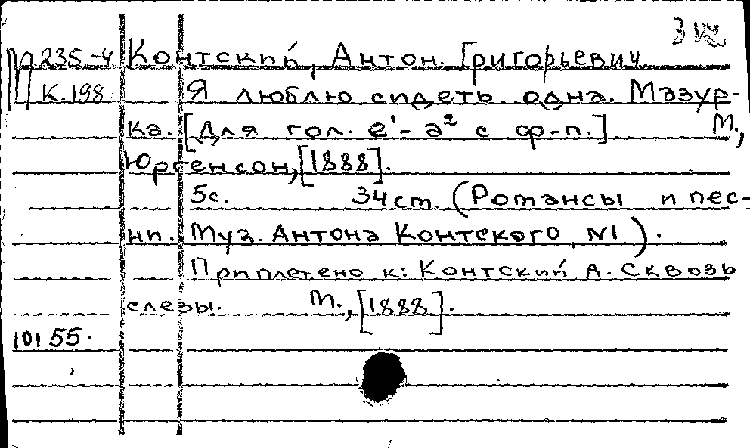 П 235-4 Контский, Антон Григорьевич
К.198 Я люблю сидеть одна. Мазур-
ка. [Для гол. e¹-a² с ф-п.] М.,
Юргенсон, [1888].
5с. 34 ст. (Романсы и пес-
ни. Муз. Антона Контского, N1).
Приплетено к: Контский А. Сквозь
слезы. М., [1888].
10155.